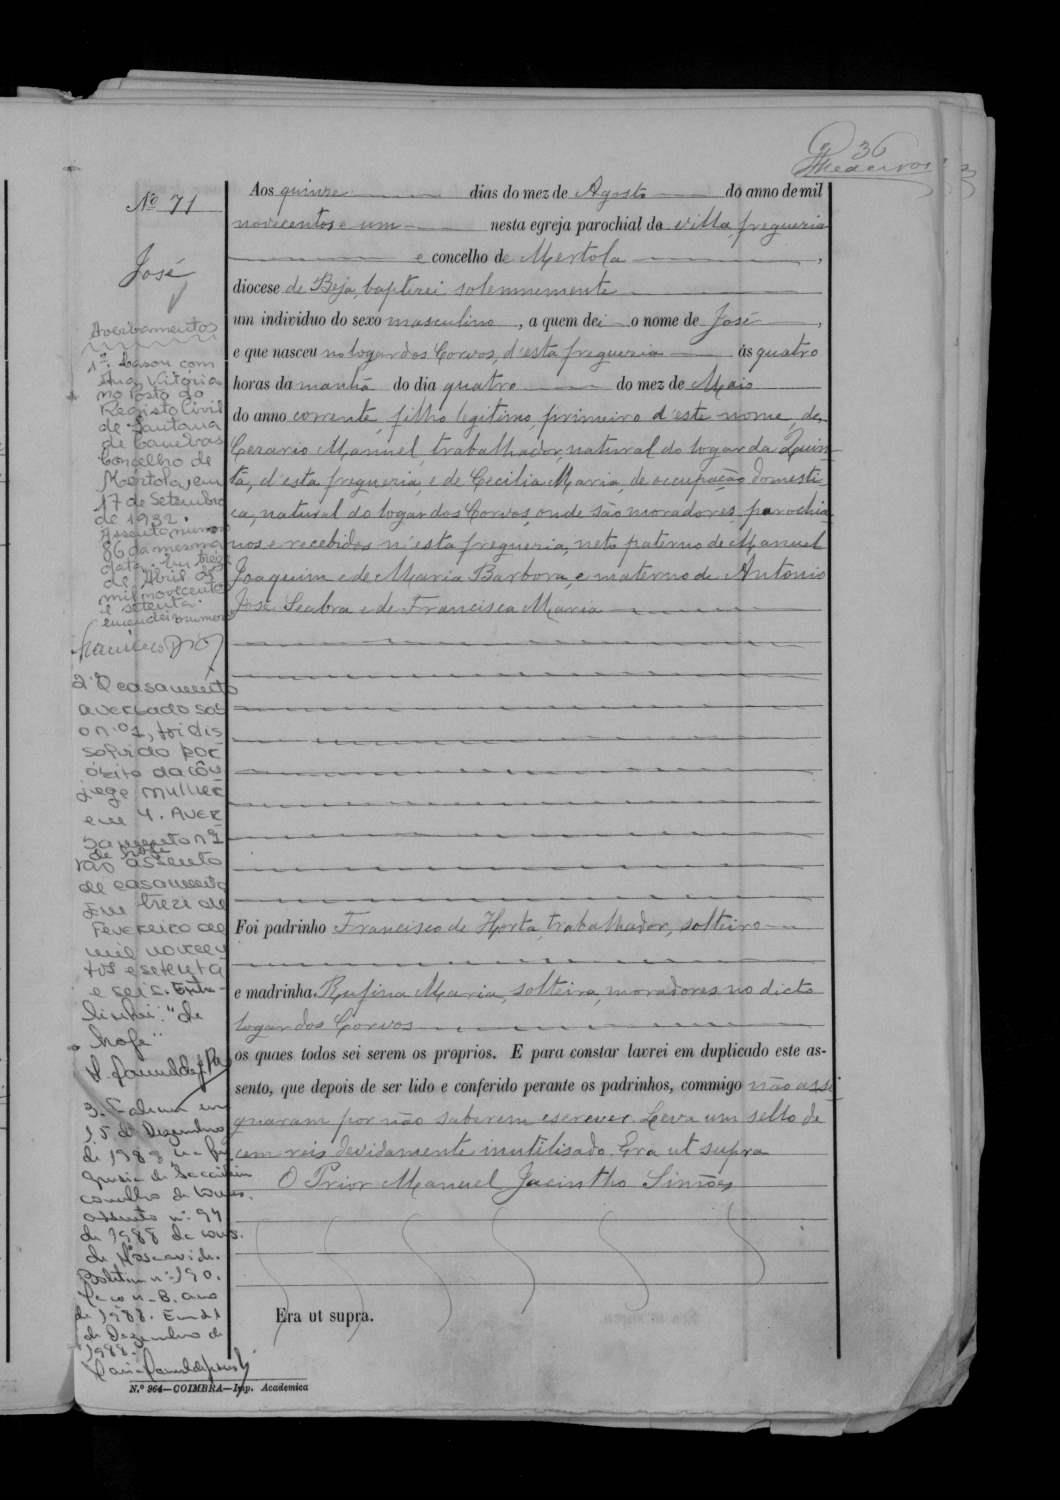 36
Medeiros
Nº 71
José
Aos quinze dias do mez de Agosto do anno de mil
novecentos e um nesta egreja parochial da villa, freguezia
e concelho de Mertola,
diocese de Beja, baptizei solemnemente
um individuo do sexo masculino, a quem dei o nome de José,
e que nasceu no logar dos Corvos, d'esta freguezia ás quatro
horas da manhã do dia quatro do mez de Maio
do anno corrente, filho legitimo, primeiro d'este nome, de
Cezario Manuel, trabalhador, natural do logar da Quin-
tã, d'esta freguezia, e de Cecilia Maria, de occupação domesti-
ca, natural do logar dos Corvos, onde são moradores, parochia-
nos e recebidos n'esta freguezia, neto paterno de Manuel
Joaquim e de Maria Barbora, e materno de Antonio
José Seabra e de Francisca Maria
Foi padrinho Francisco de Horta, trabalhador, solteiro
e madrinha Rufina Maria, solteira, moradores no dicto
logar dos Corvos
os quaes todos sei serem os proprios. E para constar lavrei em duplicado este as-
sento, que depois de ser lido e conferido perante os padrinhos, commigo não assi-
gnaram por não saberem escrever. Leva um sello de
cem reis devidamente inutilisado. Era ut supra
O Prior Manuel Jacintho Simões
Era ut supra.
Averbamentos
1º. Casou com
Ana Vitória
no Posto do
Registo Civil
de Santana
de Cambas
Concelho de
Mértola, em
17 de Setembro
de 1932.
Assento numero
86 da mesma
data. Em tres
de Abril de
mil novecentos
e setenta.
emendei numero
2º O casamento
averbado sob
o n.º 1, foi dis-
solvido por
óbito da côn-
juge mulher
em 4. Aver-
bamento nº 1
de hoje
ao assento
de casamento
Em treze de
Fevereiro de
mil novecen-
tos e setenta
e seis. Entre-
linhei: "de
hoje"
3. Faleceu em
15 de Dezembro
de 1988 na fre-
guesia de Sacavém
concelho de Loures.
assento nº. 94
de 1988 da cons.
de Moscavide.
Boletim nº 190.
Maço n.º 8. ano
de 1988. Em 21
de Dezembro de
1988.
N.º 964—COIMBRA—Imp. Academica